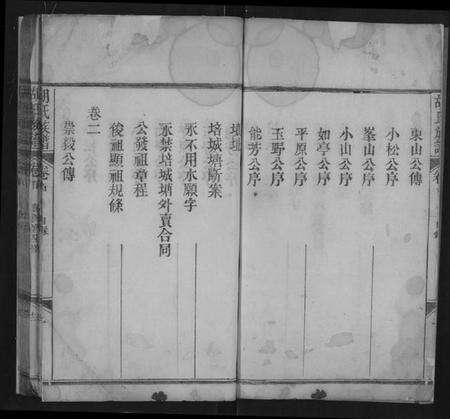 東山公傳
小松公序
峯山公序
小山公序
如亭公序
平原公序
玉野公序
能芳公序
培城塘斷案
永不用水願字
永禁培城塘外賣合同
公發祖章程
俊祖顯祖規條
卷二
崇敎公傳
胡氏族譜